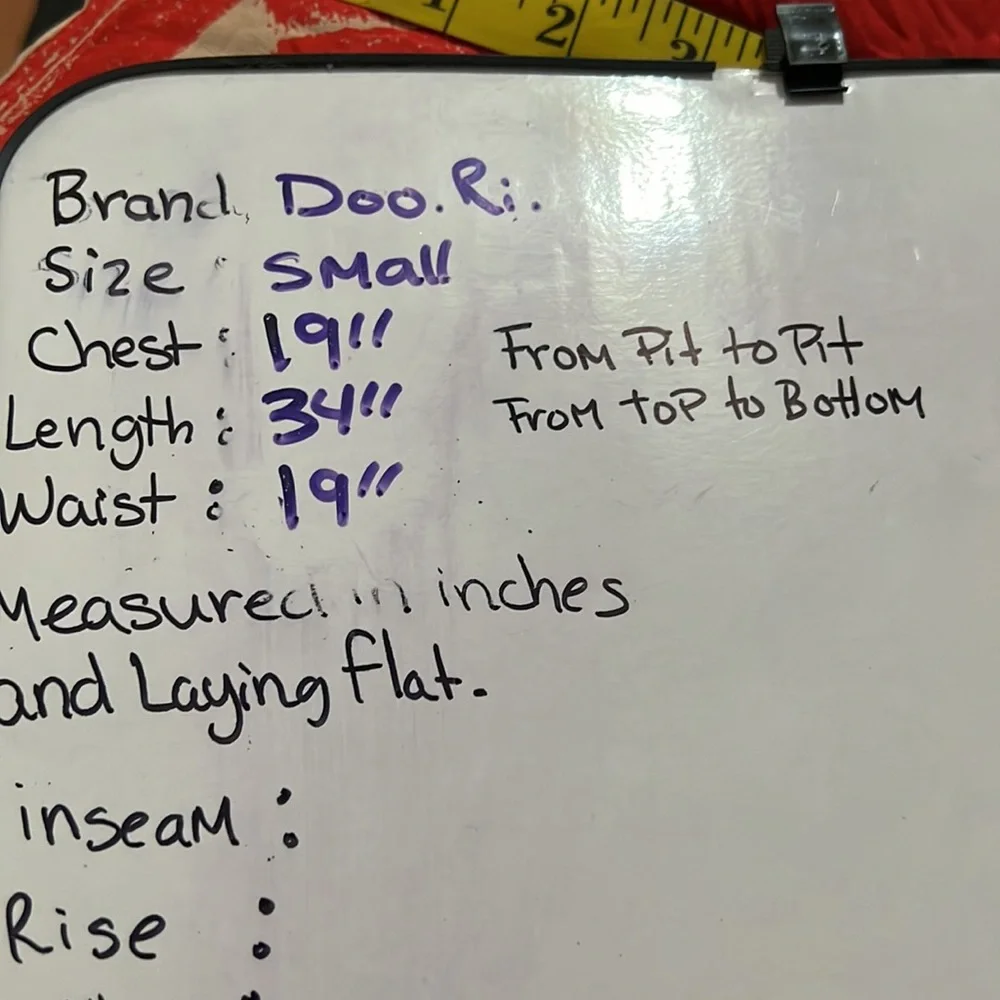 1 2 3
Brand. Doo.Ri.
Size : SMall
Chest : 19" From Pit to Pit
Length : 34" From top to Bottom
Waist : 19"
Measured in inches
and Laying flat.
inseam :
Rise :